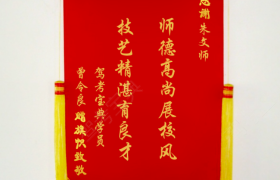 感谢朱文师
师德高尚展校风
技艺精湛育良才
驾考宝典学员
曾令良 赠旗致敬